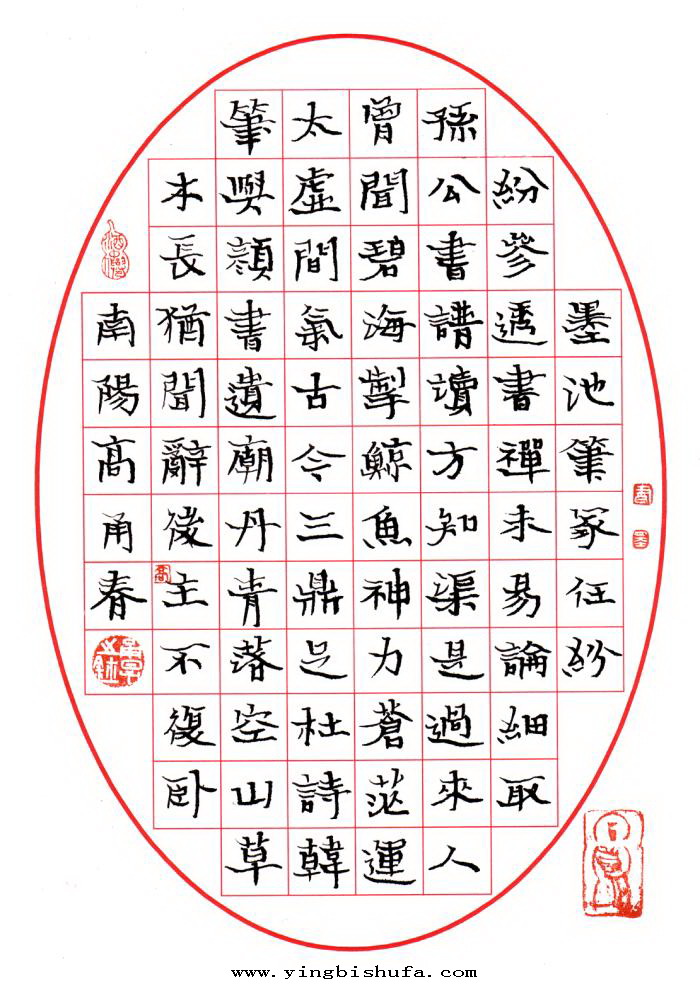 墨池筆冢任紛
紛參透書禪未易論細取
孫公書譜讀方知渠是過來人
曾聞碧海掣鯨魚神力蒼茫運
太虛間氣古今三鼎足杜詩韓
筆與顏書遺廟丹青落空山草
木長猶聞辭後主不復卧
南陽高甬春
www.yingbishufa.com